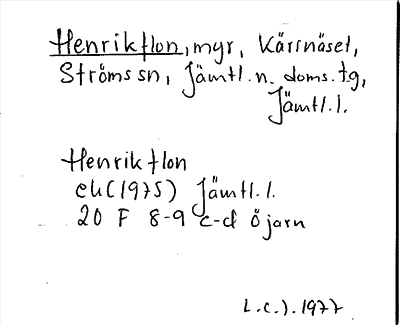 Henrikflon, myr, Kärrnäset,
Ströms sn, Jämtl. n. doms. tg,
Jämtl. l.
Henrikflon
ek (1975) Jämtl. l.
20 F 8-9 c-d Öjarn
L.C.J. 1977